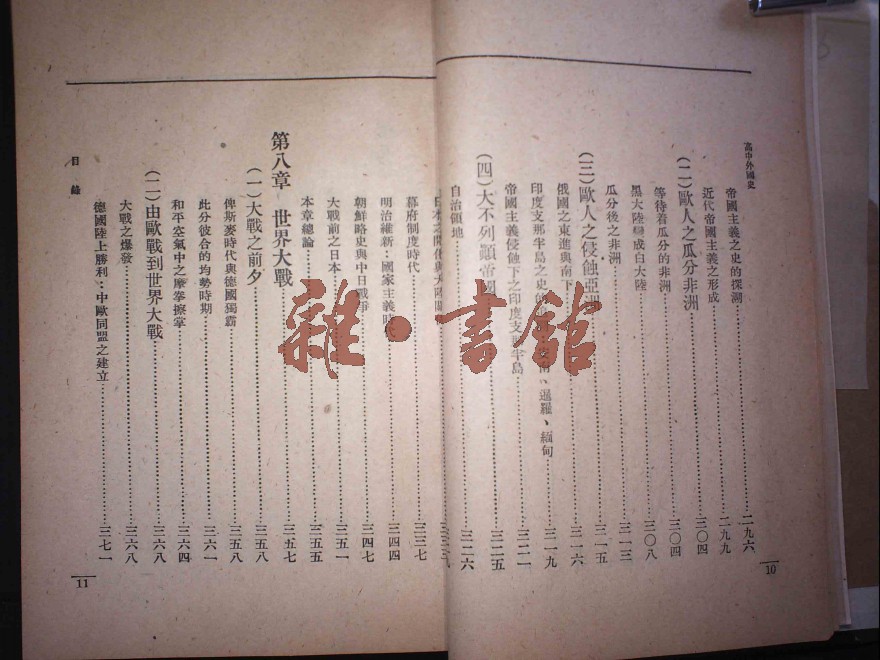 高中外國史
帝國主義之史的探溯……二九六
近代帝國主義之形成……二九九
(二)歐人之瓜分非洲……三〇四
等待着瓜分的非洲……三〇四
黑大陸變成白大陸……三〇八
瓜分後之非洲……三一三
(三)歐人之侵蝕亞洲……三一五
俄國之東進與南下……三一六
印度支那半島之史的 、暹羅、緬甸……三一九
帝國主義侵蝕下之印度支那半島……三二一
(四)大不列顚帝國……三二五
自治領地……三二六
10
幕府制度時代……三三七
明治維新:國家主義……三四四
朝鮮略史與中日戰爭……三四七
大戰前之日本……三五一
本章總論……三五五
第八章 世界大戰……三五七
(一)大戰之前夕……三五八
俾斯麥時代與德國獨霸……三五八
此分彼合的均勢時期……三六一
和平空氣中之摩拳擦掌……三六四
(二)由歐戰到世界大戰……三六八
大戰之爆發……三六八
德國陸上勝利:中歐同盟之建立……三七一
目錄
11
雜·書館